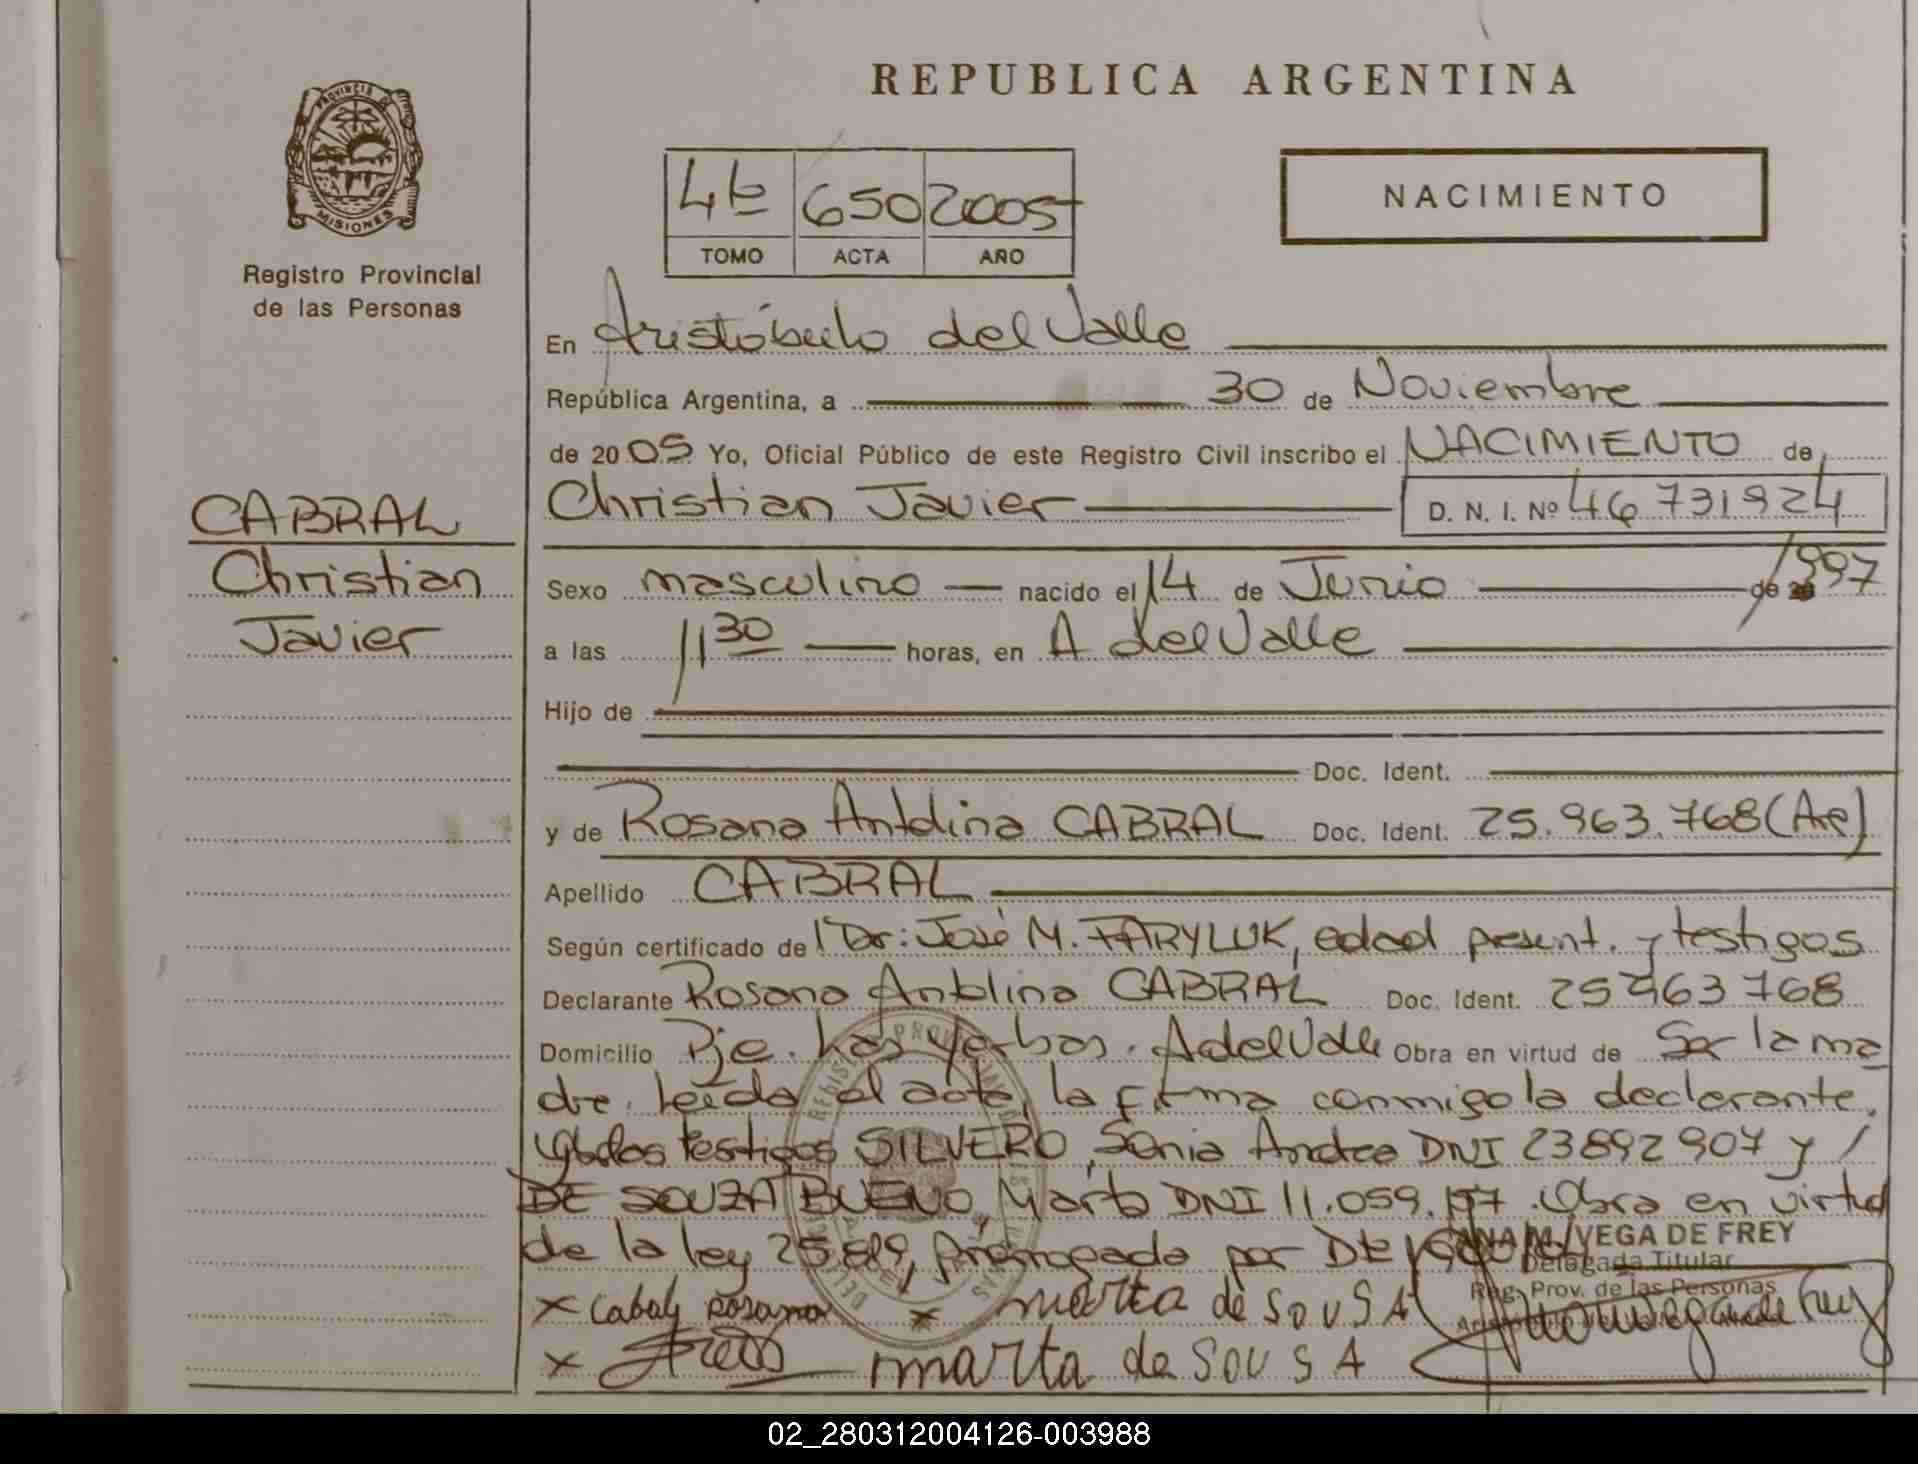 REPUBLICA ARGENTINA
PROVINCIA DE
MISIONES
Registro Provincial
de las Personas
4to 650 2005
TOMO ACTA AÑO
NACIMIENTO
CABRAL
Christian
Javier
En Aristóbulo del Valle
República Argentina, a 30 de Noviembre
de 20 05 Yo, Oficial Público de este Registro Civil inscribo el NACIMIENTO de
Christian Javier D. N. I. Nº 46 731 924
Sexo masculino nacido el 14 de Junio de 1997
a las 11 30 horas, en A del Valle
Hijo de
Doc. Ident.
y de Rosana Antolina CABRAL Doc. Ident. 25.963.768 (Arg)
Apellido CABRAL
Según certificado de Dr: José M. FARYLUK, edad present. y testigos
Declarante Rosana Antolina CABRAL Doc. Ident. 25 963 768
Domicilio Pje. Las Yerbas. A del Valle Obra en virtud de Ser la ma
dre. Leída el acta, la firma conmigo la declarante,
y los testigos SILVERO, Sonia Andrea DNI 23892907 y
DE SOUZA BUENO, Marta DNI 11.059. Obra en virtud
de la ley 25.819, prorrogada por
ANA M. VEGA DE FREY
Delegada Titular
Reg. Prov. de las Personas
x Cabral Rosana x marta de SOUSA
x marta de SOUSA
02_280312004126-003988